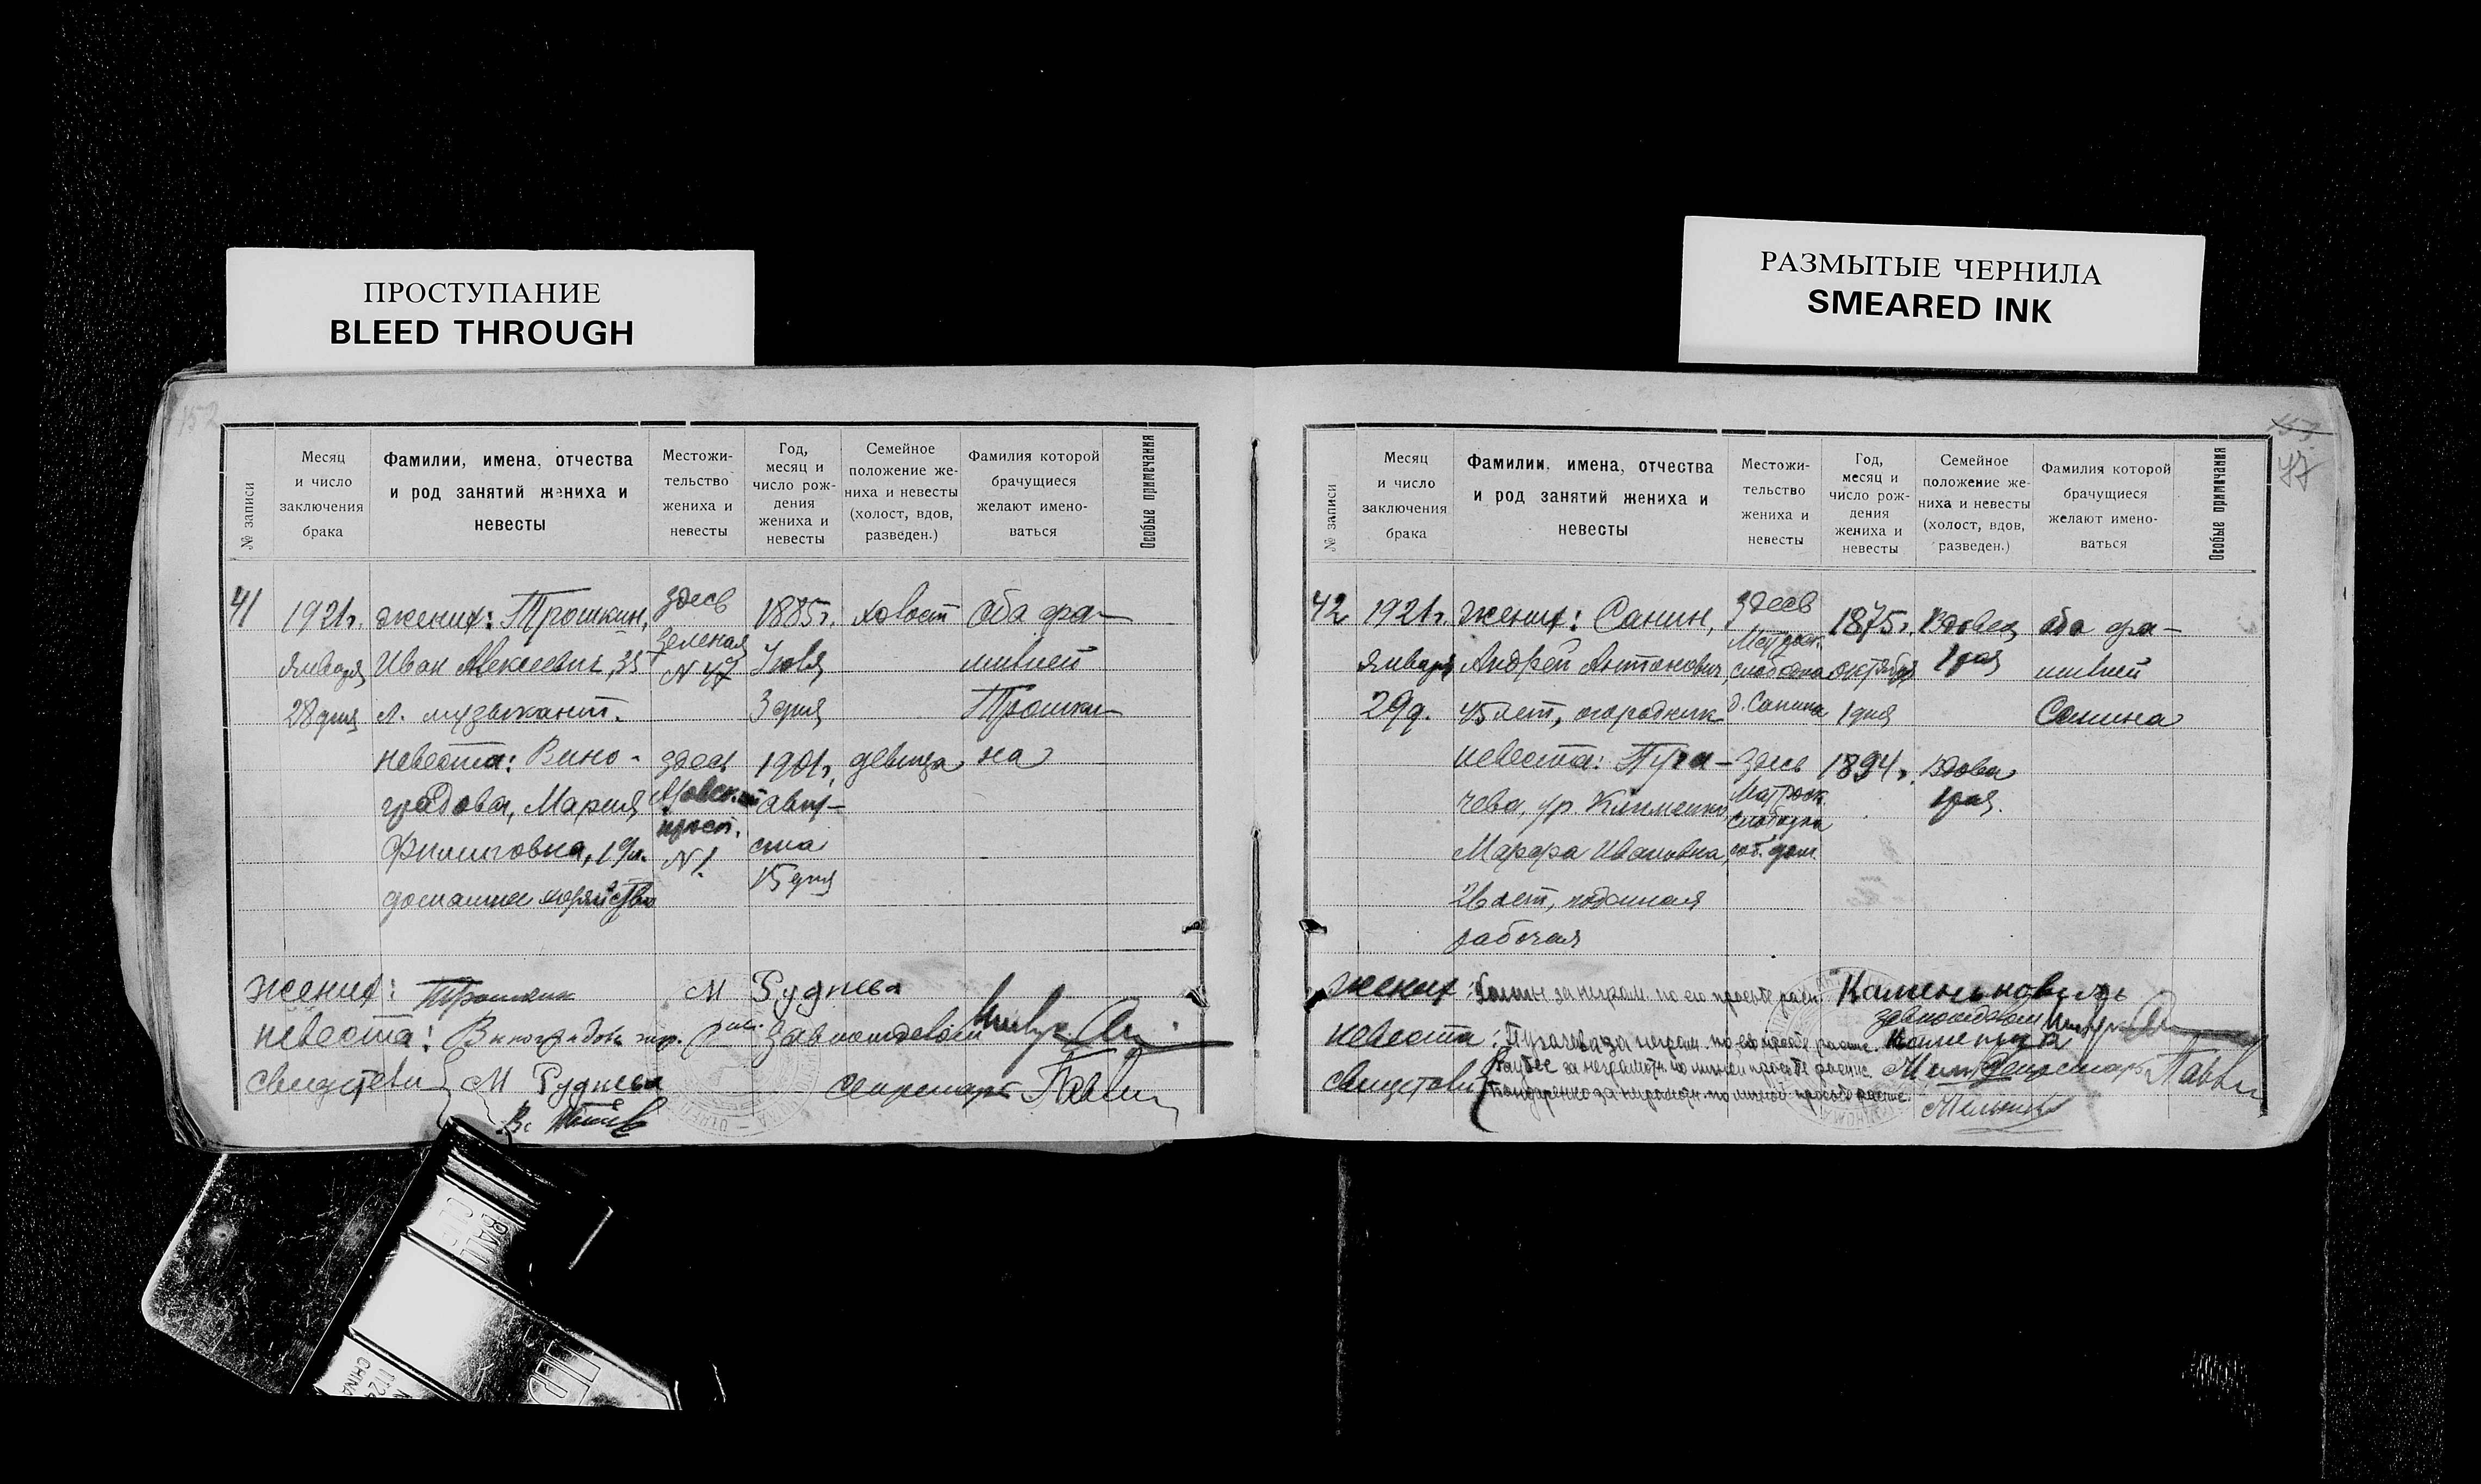 ПРОСТУПАНИЕ
BLEED THROUGH
РАЗМЫТЫЕ ЧЕРНИЛА
SMEARED INK
152
№ записи
Месяц
и число
заключения
брака
Фамилии, имена, отчества
и род занятий жениха и
невесты
Местожи-
тельство
жениха и
невесты
Год,
месяц и
число рож-
дения
жениха и
невесты
Семейное
положение же-
ниха и невесты
(холост, вдов,
разведен.)
Фамилия которой
брачущиеся
желают имено-
ваться
Особые примечания
41
1921г.
января
28 дня
жених: Трошкин,
Иван Алексеевич, 35
л. музыкант.
невеста: Вино-
градова, Мария
Филипповна, 19л.
домашнее хозяйство
здесь
Зеленая
N 47
здесь
просп.
N 1.
1885г.
Июля
3 дня
1901г.
авгу-
ста
15 дня
холост
девица
оба фа-
милией
Трошки-
на
жених: Трошкин
М Руднева
невеста: Виноградова
Завпотделом
свидетели М Руднева
секретарь
47
№ записи
Месяц
и число
заключения
брака
Фамилии, имена, отчества
и род занятий жениха и
невесты
Местожи-
тельство
жениха и
невесты
Год,
месяц и
число рож-
дения
жениха и
невесты
Семейное
положение же-
ниха и невесты
(холост, вдов,
разведен.)
Фамилия которой
брачущиеся
желают имено-
ваться
Особые примечания
42
1921г.
января
29д.
жених: Санин,
Андрей Антонович,
45 лет, огородник
невеста: Пуга-
чева, ур. Клименко,
Марфа Ивановна,
26 лет, поденная
рабочая
здесь
Матроск.
слободка
д. Санина
здесь
Матроск.
слободка
соб. дом
1875г.
октября
1 дня
1894г.
Вдовец
1 рая
Вдова
1 рая.
оба фа-
милией
Санина
жених: Санин за неграм. по его просьбе расп.
завпотделом
невеста: Пугачева за неграм. по ее просьбе распис.
свидетели
за неграмотн. по личной просьбе распис.
Бондаренко за неграмотн. по личной просьбе распис.
секретарь
CHINA